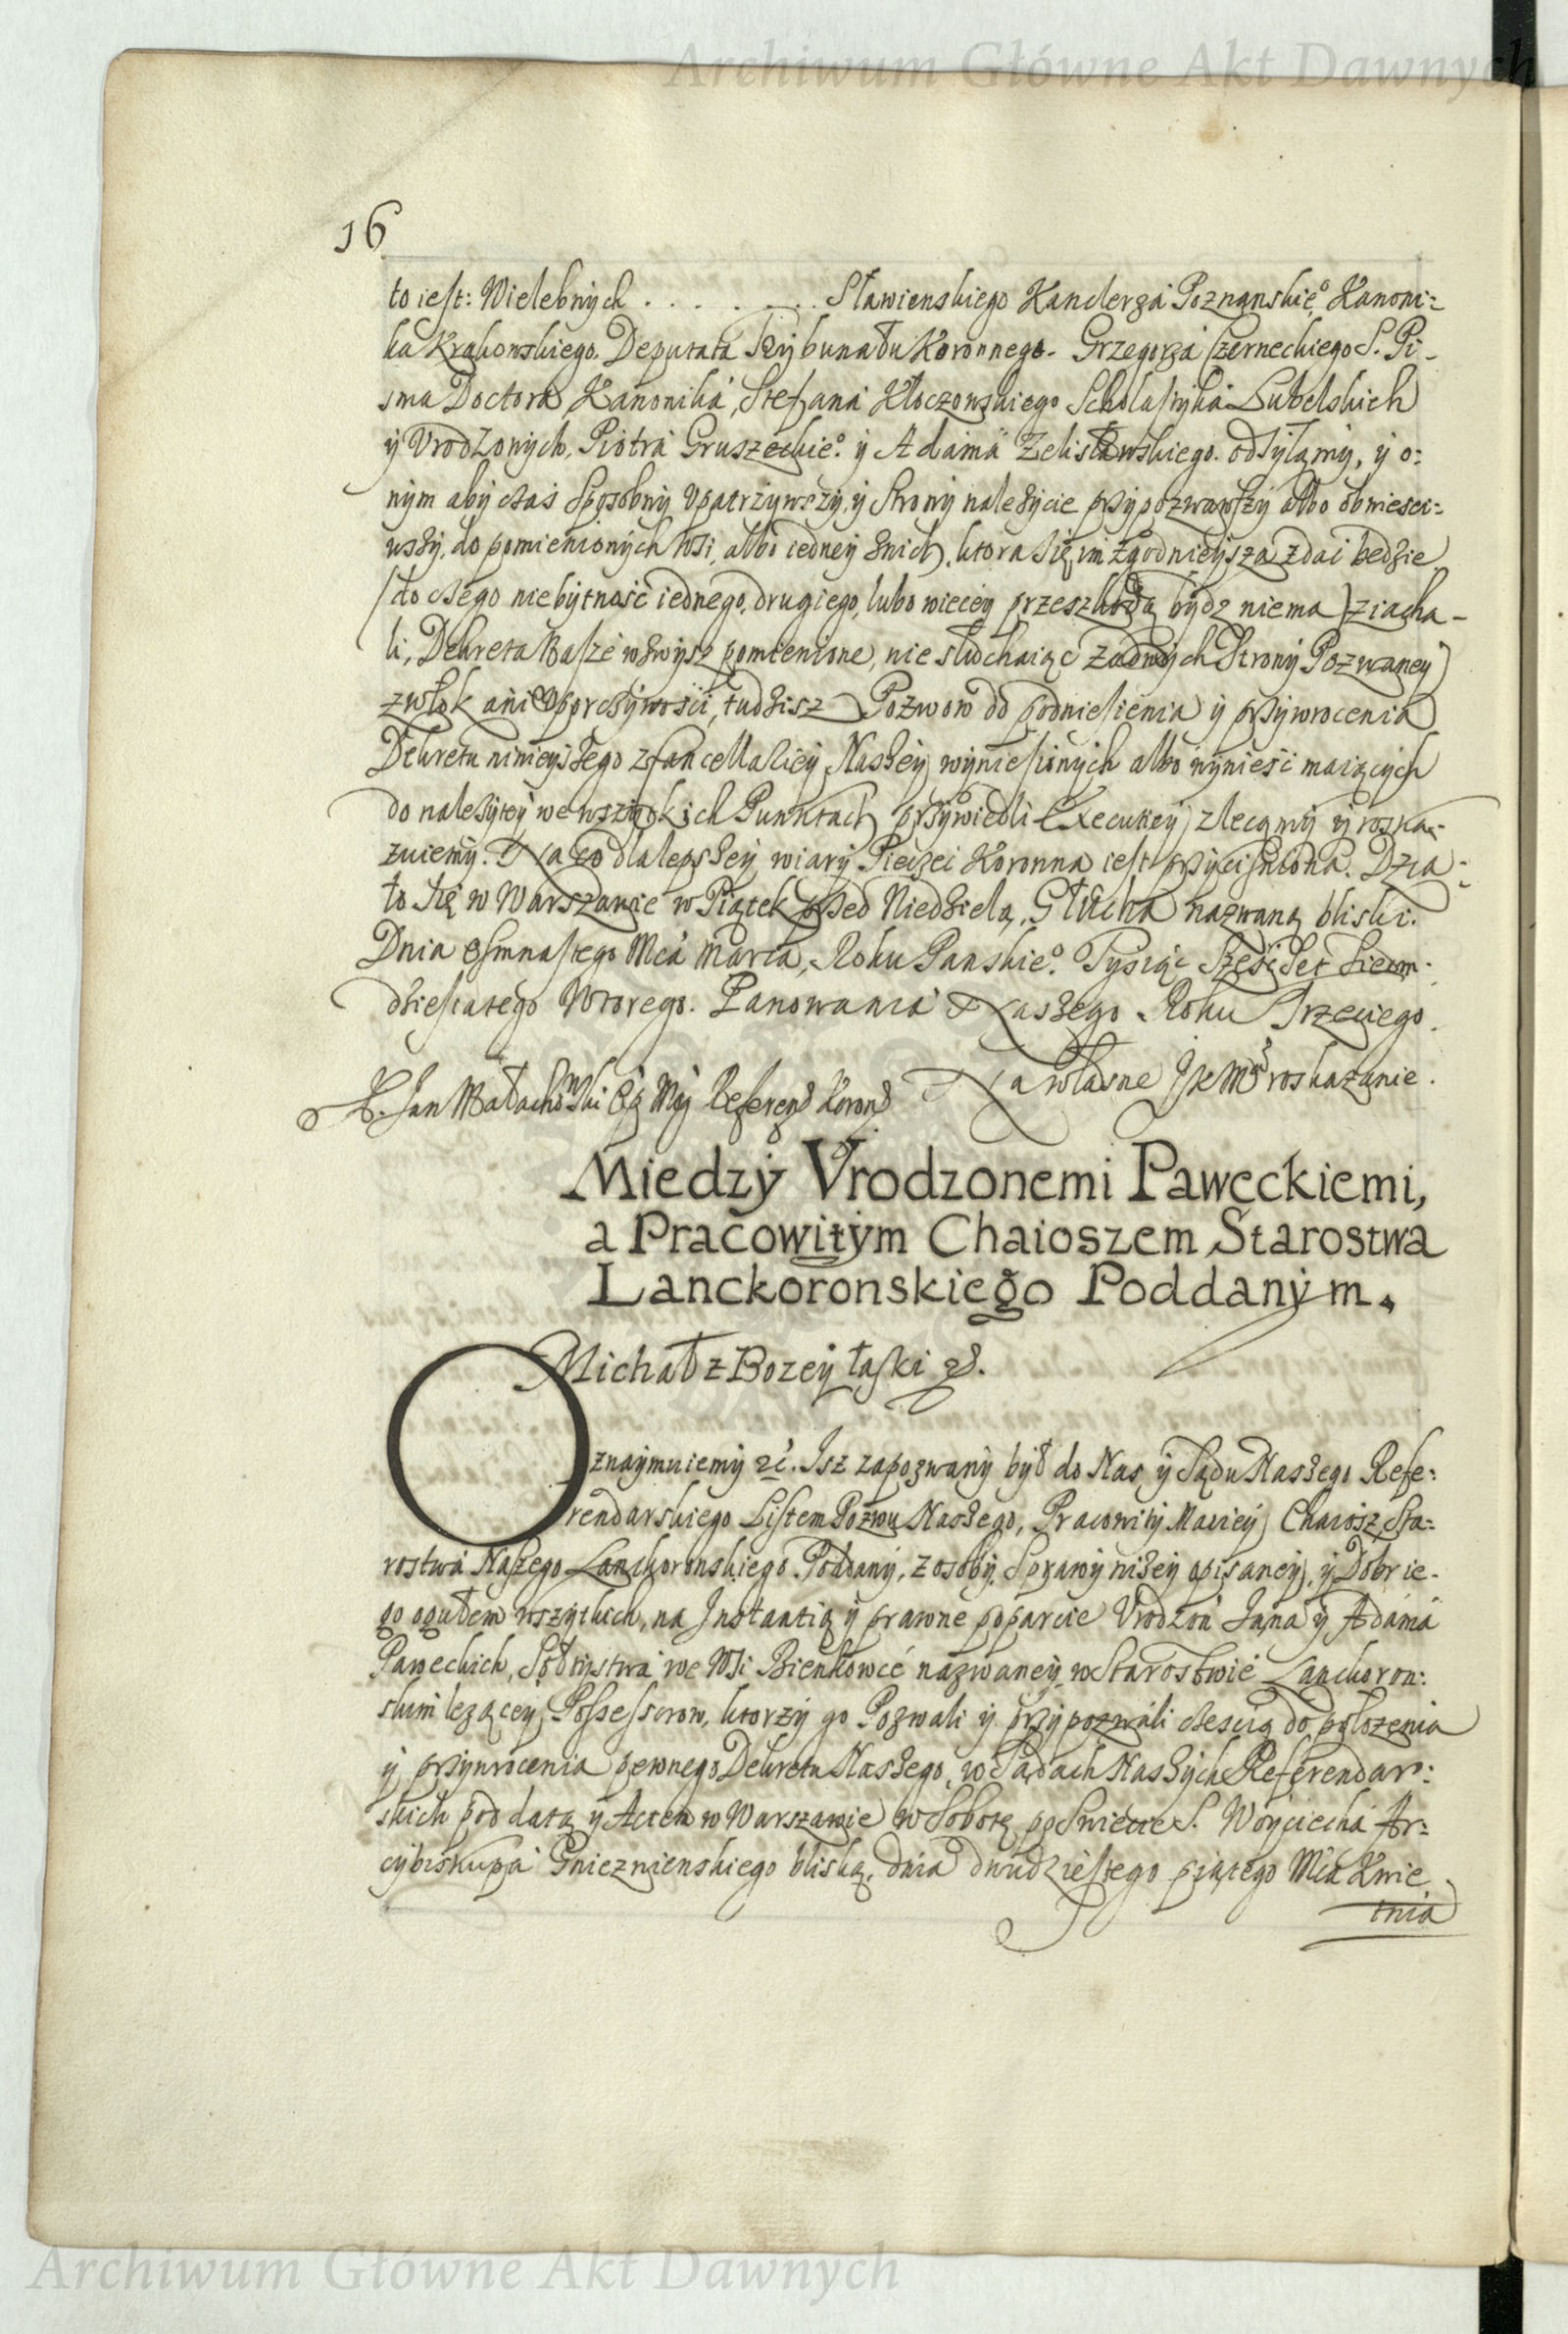 Archiwum Główne Akt Dawnych
16
to iest: Wielebnych . . . . . . . . Sławienskiego Kanclerza Poznanskie͞o. Kanoni:
ka Krakowskiego. Deputata Trybunału Koronnego. Grzegorza Czerneckiego S. Pi-
sma Doctora Kanonika, Stefana Kłoczowskiego Scholastyka Lubelskich
y Vrodzonych, Piotra Gruszeckie͞o. y Adama Zelisławskiego. odsyłamy, y o:
nym aby czas sposobny vpatrzywszy, y Strony należycie przypozwawszy albo obwiesci:
wszy, do pomienionych Wsi, albo iedney znich, ktora się im zgodnieysza zdać bedzie
(do czego niebytność iednego, drugiego, lubo wiecey przeszkodą bydz niema) ziacha-
li, Dekreta Nasze wzwysz pomienione, nie słuchaiąc żadnych Strony Pozwaney
zwłok ani oporczywości, tudzisz Pozwow do podniesienia y przywrocenia
Dekretu ninieyszego z Cancellariey Naszey wyniesionych albo wynieść maiących
do należytey we wszytkich Punktach przywiedli Executiey zlecamy y roska-
zuiemy. Na co dla lepszey wiary Pieczęć Koronna iest przyciśniona. Dzia-
ło się w Warszawie w Piątek przed Niedzielą, Głucha nazwaną bliski.
Dnia Osmnastego Mca Marca, Roku Panskie͞o. Tysiąc Szescset Siedm-
dziesiatego Wtorego. Panowania Naszego Roku Trzeciego.
X. Jan Małachowski Referend Koron
Na własne JKMci roskazanie.
Miedzy Vrodzonemi Paweckiemi,
a Pracowitym Chaioszem Starostwa
Lanckoronskiego Poddanym.
Michał z Bozey łaski &.
Oznaymuiemy &c. Isz zapozwany był do Nas y Sądu Naszego Refe:
rendarskiego Listem Pozwu Naszego, Pracowity Maciey Chaiosz Sta:
rostwa Naszego Lanckoronskiego Poddany, z osoby, Sprawy niżey opisaney, y Dobr ie-
go ogułem wszytkich, na Instantią y prawne poparcie Vrodzon Jana y Adama
Paweckich, Sołtystwa we Wsi Bienkowce nazwaney, w Starostwie Lanckoron:
skim leżącey Possessorow, ktorzy go Pozwali y przypozwali czescią do położenia
y przywrocenia pewnego Dekretu Naszego, w Sądach Naszych Referendar:
skich pod datą y Actem w Warszawie w Sobotę po Swiecie S. Woyciecha Ar:
cybiskupa Gnieznienskiego bliską, dnia dwudziestego piątego Mca Kwie
tnia
Archiwum Główne Akt Dawnych